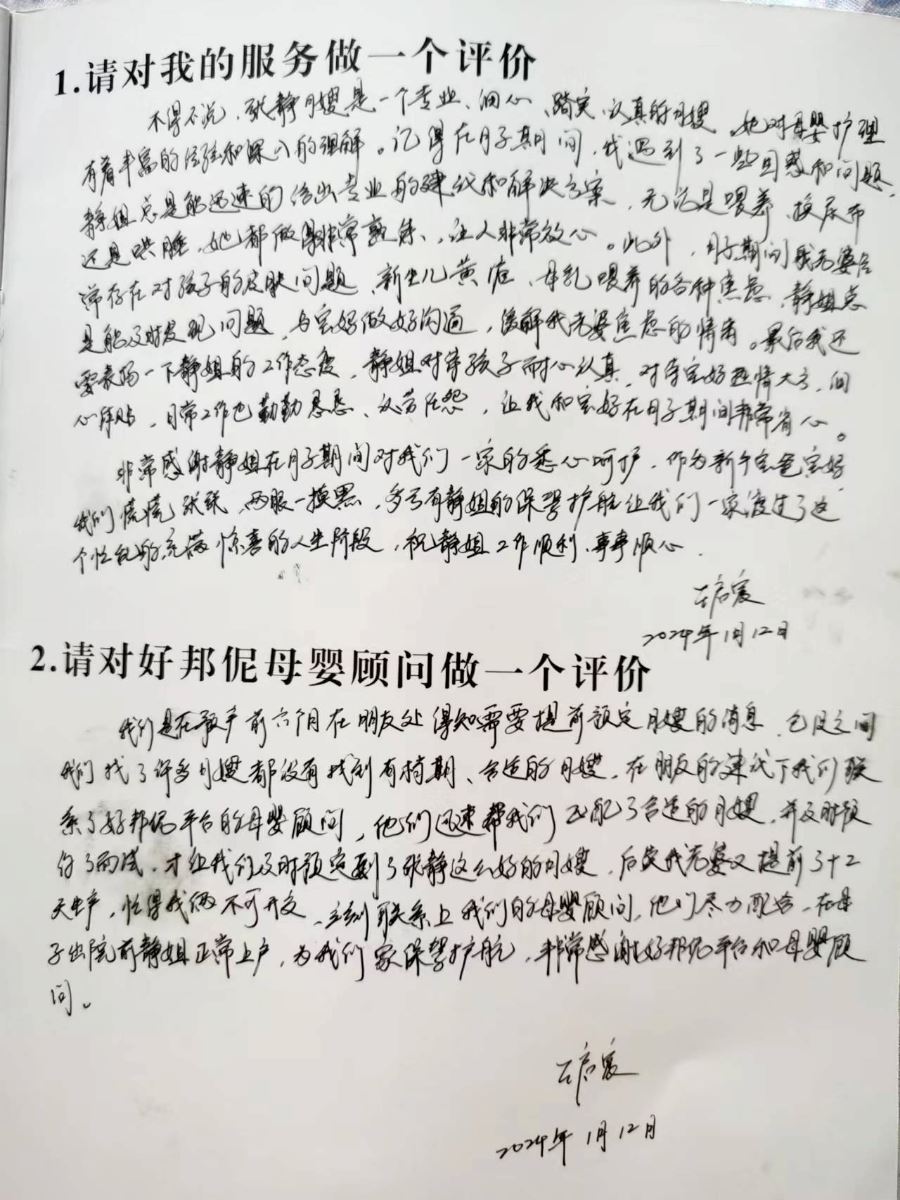 1.请对我的服务做一个评价
不得不说，张静月嫂是一个专业、细心、踏实、认真的月嫂。她对母婴护理
有着丰富的经验和深入的理解。记得在月子期间，我遇到了一些困惑和问题，
静姐总是能迅速的给出专业的建议和解决方案，无论是喂养、换尿布
还是哄睡，她都做得非常熟练，让人非常放心。此外，月子期间我老婆经
常存在对孩子的皮肤问题、新生儿黄疸、母乳喂养的各种焦虑，静姐总
是能及时发现问题，与宝妈做好沟通，缓解我老婆焦虑的情绪。最后我还
要表扬一下静姐的工作态度，静姐对待孩子耐心认真，对待宝妈热情大方，细
心体贴，日常工作也勤勤恳恳、任劳任怨，让我和宝妈在月子期间非常省心。
非常感谢静姐在月子期间对我们一家的悉心呵护，作为新手宝爸宝妈
我们慌慌张张，两眼一摸黑，多亏有静姐的保驾护航让我们一家渡过了这
个忙乱的充满惊喜的人生阶段，祝静姐工作顺利、事事顺心.
2024年1月12日
2.请对好邦伲母婴顾问做一个评价
我们是在预产前六个月在朋友处得知需要提前预定月嫂的消息，
我们找了许多月嫂都没有找到有档期、合适的月嫂，在朋友的建议下我们联
系了好邦伲平台的母婴顾问，他们迅速帮我们匹配了合适的月嫂，并及时
了面试，才让我们及时预定到了张静这么好的月嫂，后来我老婆又提前了十2
天生产，忙得我俩不可开交，立刻联系上我们的母婴顾问，他们尽力配合，在母
子出院前静姐正常上户，为我们家保驾护航，非常感谢好邦伲平台和母婴顾
问。
2024年1月12日